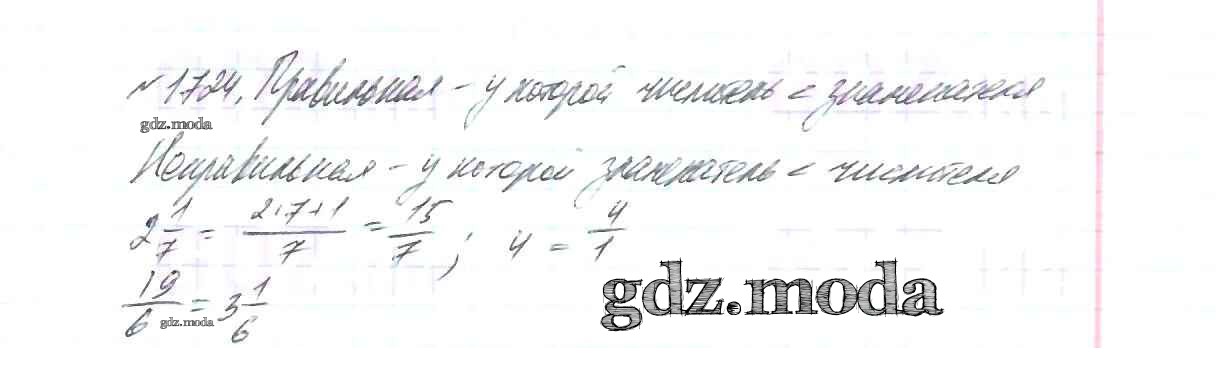 №1724. Правильная – у которой числитель < знаменателя
gdz.moda
Неправильная – у которой знаменатель < числителя
2 1/7 = (2·7+1)/7 = 15/7 ; 4 = 4/1
19/6 = 3 1/6
gdz.moda
gdz.moda